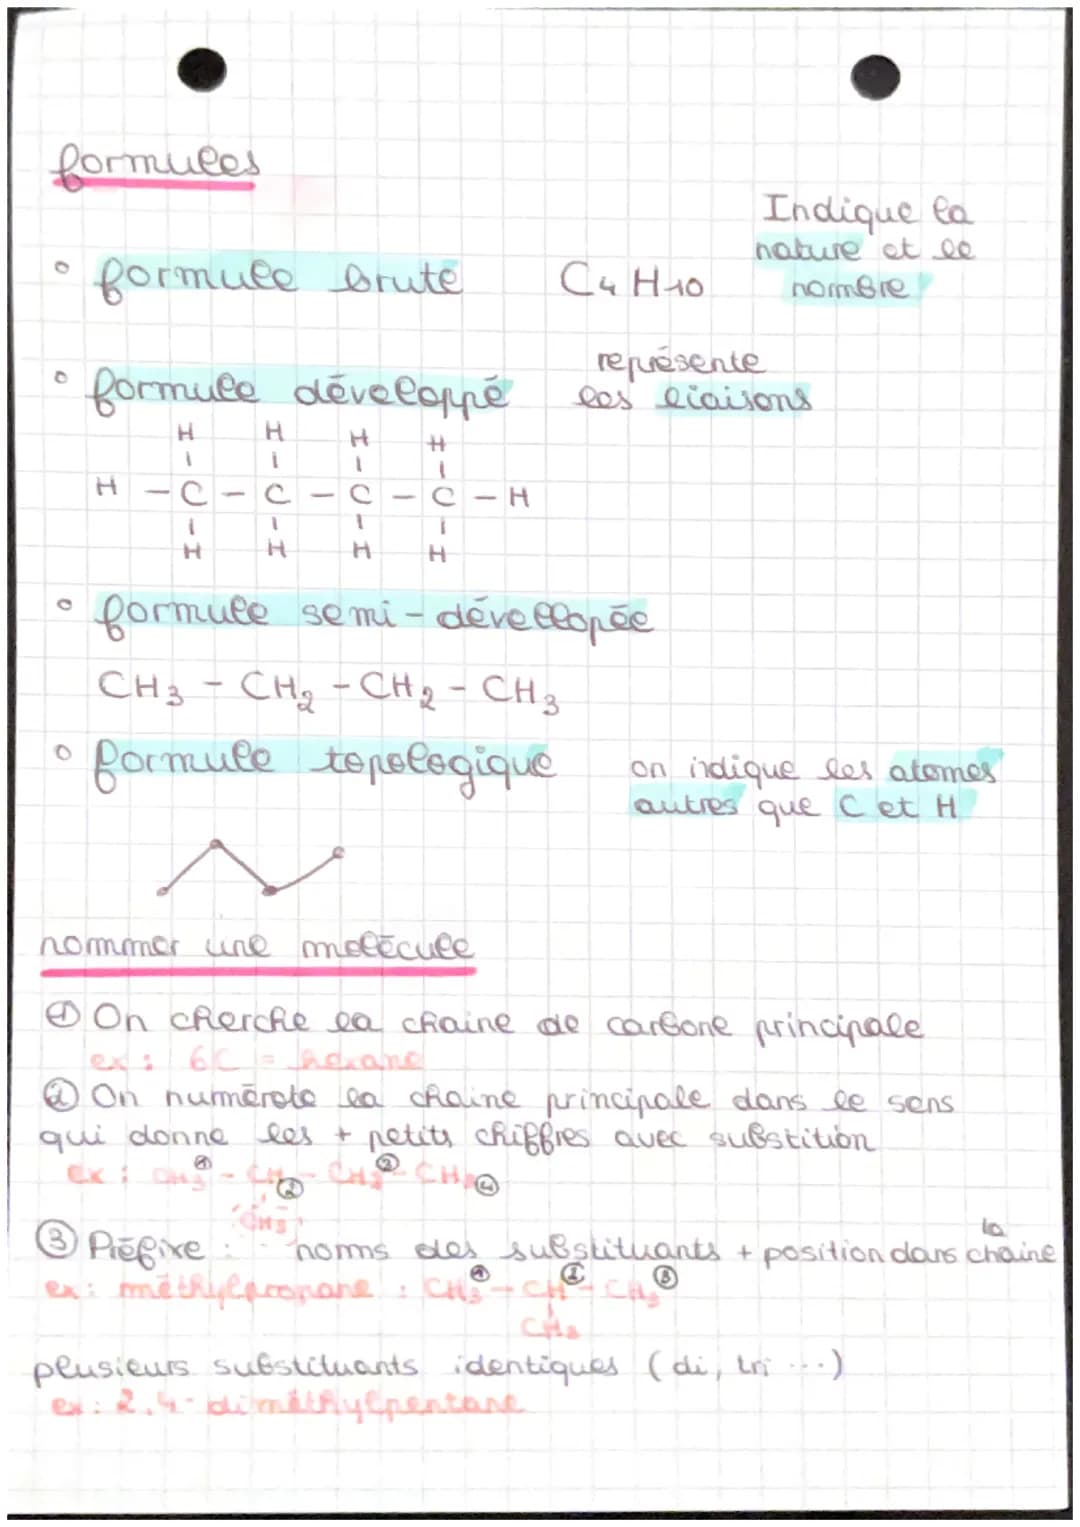 formules
Indique la
nature et le
nombre
° formule brute C4H10
représente
° formule développé les liaisons
H H H H
H - C - C - C - C - H
H H H H
° formule semi-dévellopée
CH3 - CH2 - CH2 - CH3
° formule topologique on indique les atomes
autres que C et H
nommer une molécule
① On cherche la chaine de carbone principale
ex : 6C = hexane
② On numérote la chaine principale dans le sens
qui donne les + petits chiffres avec substition
ex : CH3 - CH - CH2 - CH3
① ② ④
CH3
③ Préfixe : noms des substituants + position dans la chaine
ex : méthylpropane : CH3 - CH - CH3
① ③
CH3
plusieurs substituants identiques (di, tri ...)
ex : 2,4-diméthylpentane